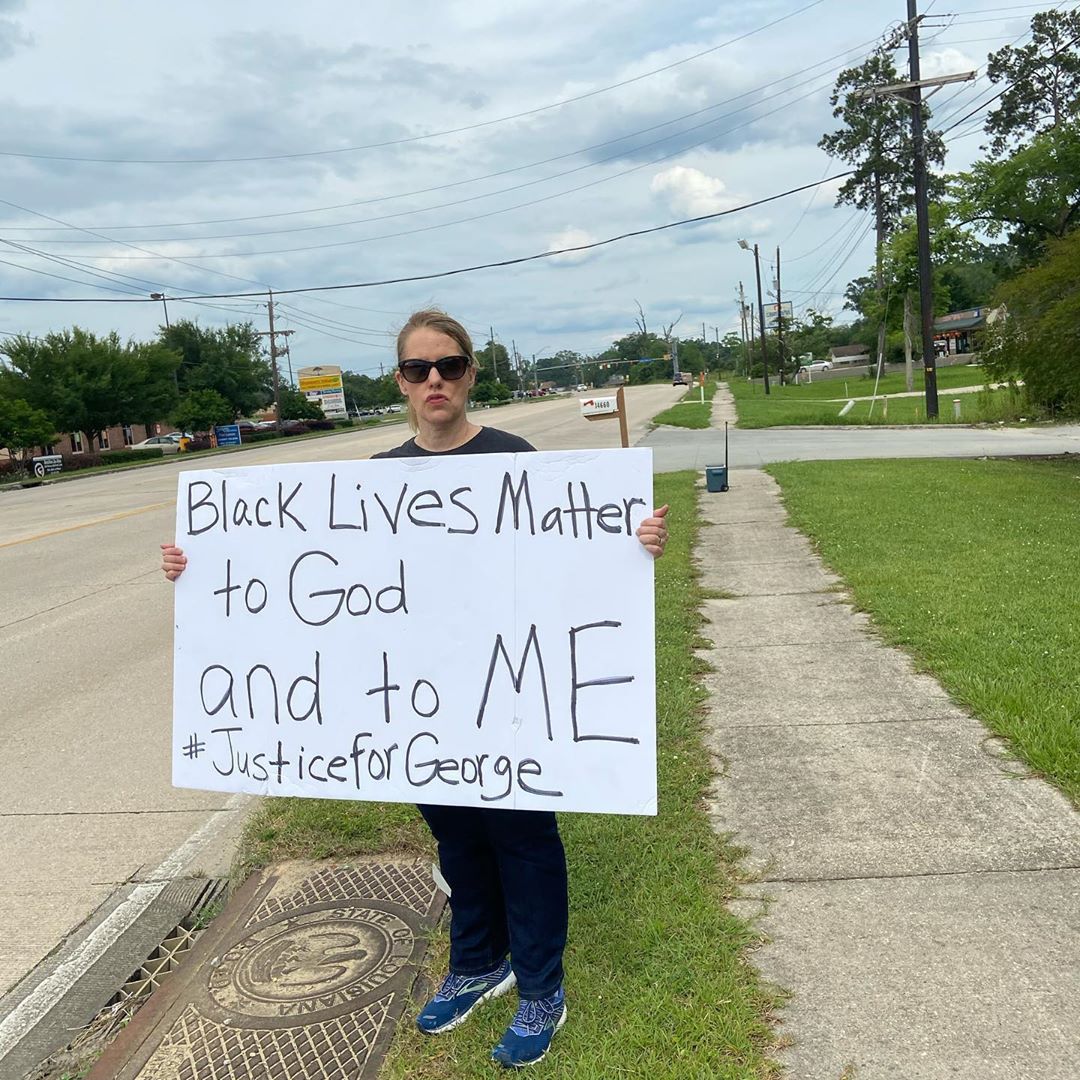 Black Lives Matter
to God
and to ME
#JusticeforGeorge
14660
STATE OF LOUISIANA